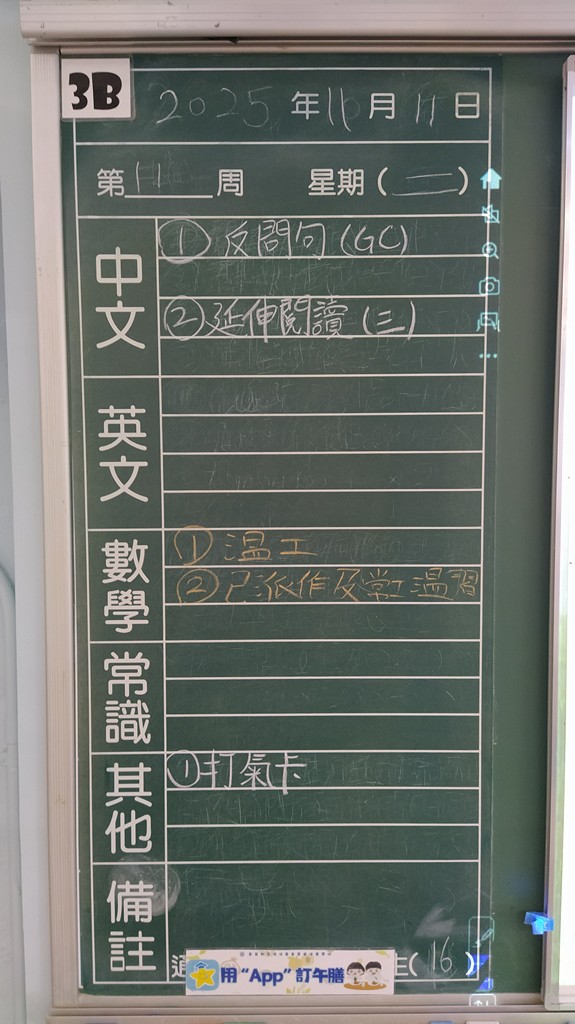 3B
2025年11月11日
第11周 星期(二)
中文
①反問句(GC)
②延伸閱讀(三)
英文
數學
①温工
②已派作及堂工温習
常識
其他
①打氣卡
備註
用“App”訂午膳
(16)